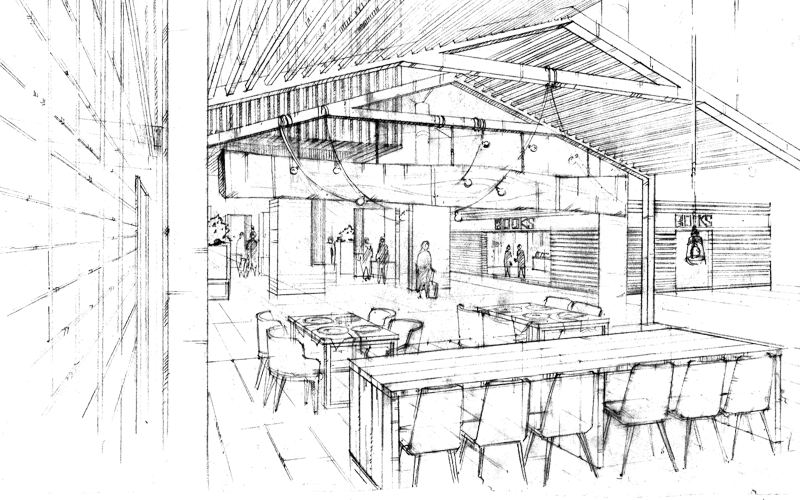 BOOKS
BOOKS